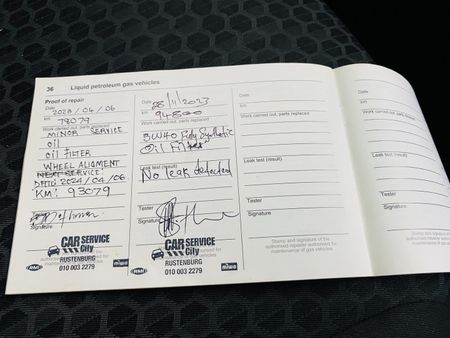 36 Liquid petroleum gas vehicles
Proof of repair
Date
2023/04/06
km
78079
Work carried out, parts replaced
MINOR SERVICE
oil
oil FILTER
WHEEL ALIGMENT
NEXT SERVICE
DATE 2024/04/06
KM: 93079
Signature
CAR SERVICE
City
RUSTENBURG
010 003 2279
RMI
miwa
Date
28/11/2023
km
94800
Work carried out, parts replaced
5W40 Fully Synthetic
Oil Filter
Leak test (result)
No leak detected
Tester
Signature
CAR SERVICE
City
RUSTENBURG
010 003 2279
RMI
miwa
Date
km
Work carried out, parts replaced
Leak test (result)
Tester
Signature
Stamp and signature of the
authorised repairer authorised for
maintenance of gas vehicles
Date
km
Work carried out, parts replaced
Leak test (result)
Tester
Signature
Stamp and signature of the
authorised repairer authorised for
maintenance of gas vehicles